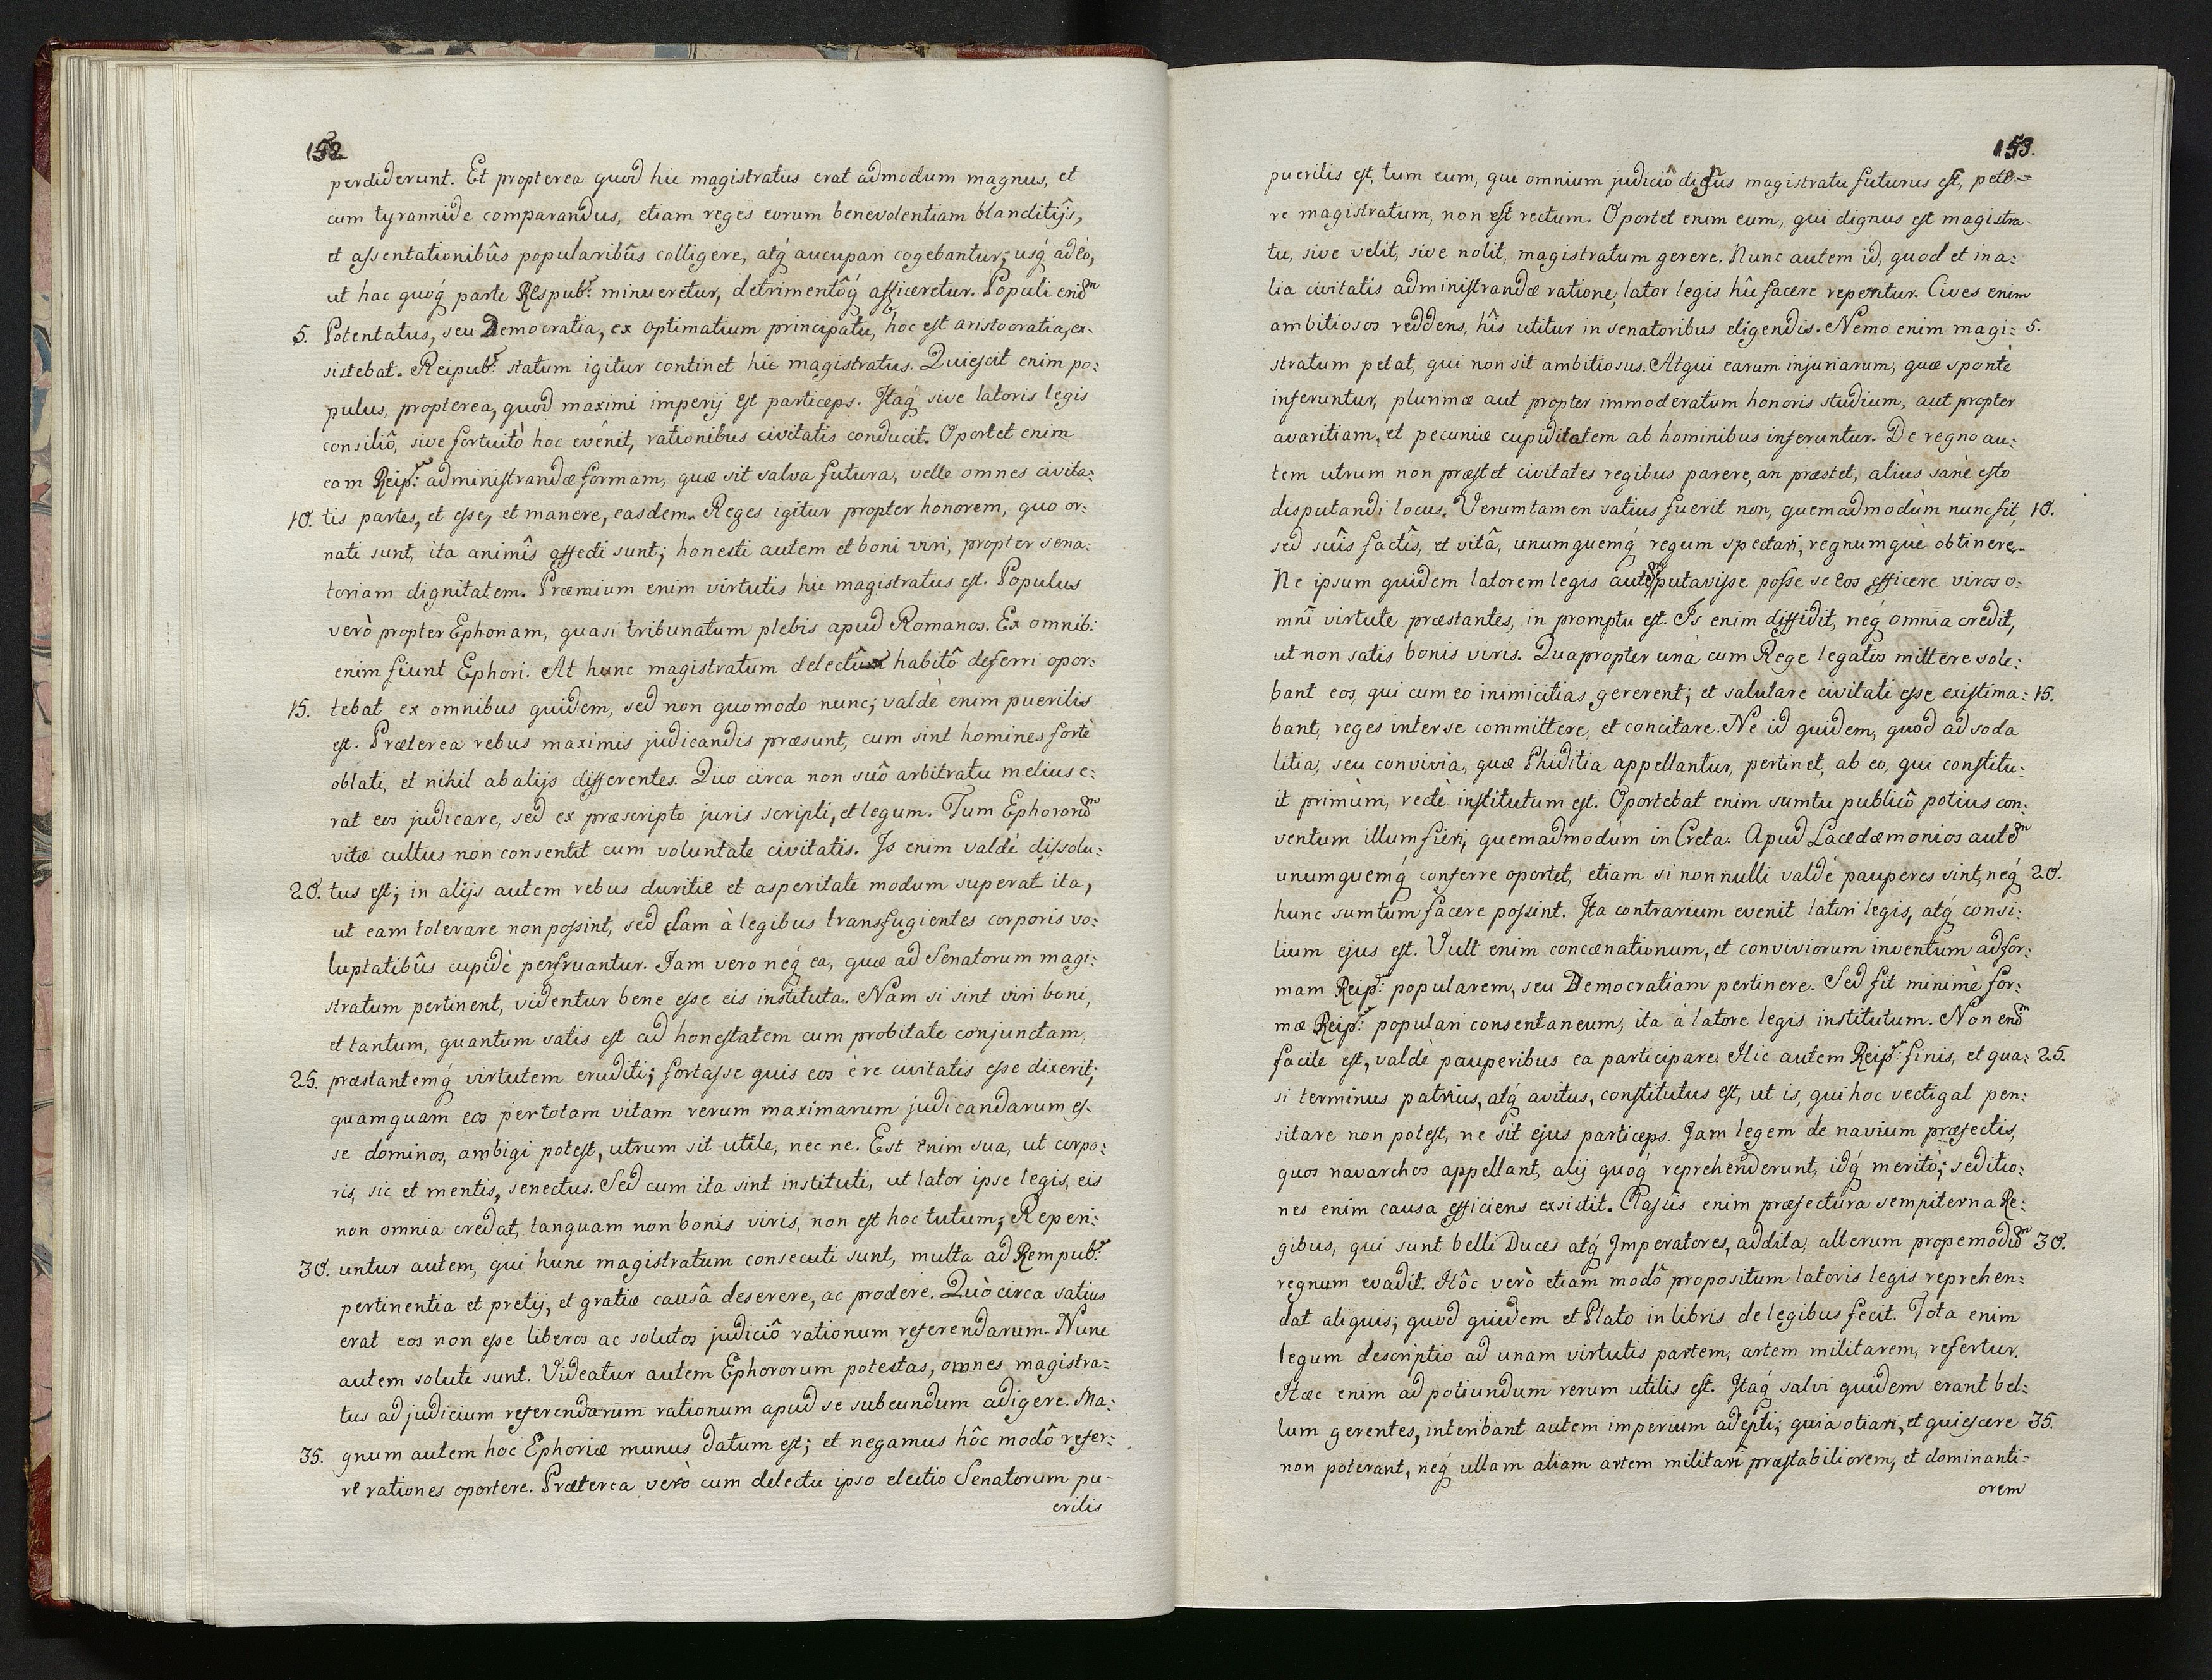 152
perdiderunt. Et propterea quod hic magistratus erat admodum magnus, et
cum tyrannide comparandus, etiam reges eorum benevolentiam blanditijs,
et assentationibûs popularibûs colligere, atq́ aucupari cogebantur; usq́ adeò,
ut hac quoq́ parte Respub: minueretur, detrimentôq́ afficeretur. Populi enim
5. Potentatus, seu Democratia, ex optimatium principatu, hoc est aristocratia, ex-
sistebat. Reipub: statum igitur continet hic magistratus. Quiescit enim po:
pulus, propterea, quod maximi imperij est particeps. Itaq́ sive latoris legis
consiliô, sive fortuitò hoc evênit, rationibus civitatis conducit. Oportet enim
eam Reip: administrandæ formam, quæ sit salva futura, velle omnes civita:
10. tis partes, et esse, et manere, easdem. Reges igitur propter honorem, quo or:
nati sunt, ita animîs affecti sunt; honesti autem et boni viri, propter sena:
toriam dignitatem. Præmium enim virtutis hic magistratus est. Populus
verò propter Ephoriam, quasi tribunatum plebis apud Romanos. Ex omnib:
enim fiunt Ephori. At hunc magistratum delectû habitô deferri opor:
15. tebat ex omnibus quidem, sed non quomodo nunc; valdè enim puerilis
est. Præterea rebus maximis judicandis præsunt, cum sint homines fortè
oblati, et nihil ab alijs differentes. Quo circa non suô arbitratu melius e:
rat eos judicare, sed ex præscripto juris scripti, et legum. Tum Ephororum
vitæ cultus non consentit cum voluntate civitatis. Is enim valdè dissolu:
20. tus est; in alijs autem rebus duritie et asperitate modum superat ita,
ut eam tolerare non possint, sed clam à legibus transfugientes corporis vo:
luptatibûs cupidè perfruantur. Jam vero neq́ ea, quæ ad Senatorum magi:
stratum pertinent, videntur bene esse eis instituta. Nam si sint viri boni,
et tantum, quantum satis est ad honestatem cum probitate conjunctam,
25. præstantemq́ virtutem eruditi; fortasse quis eos è re civitatis esse dixerit;
quamquam eos per totam vitam rerum maximarum judicandarum es-
se dominos, ambigi potest, utrum sit utile, nec ne. Est enim sua, ut corpo:
ris, sic et mentis, senectus. Sed cum ita sint instituti, ut lator ipse legis, eis
non omnia credat, tanquam non bonis viris, non est hoc tutum; Reperi:
30. untur autem, qui hunc magistratum consecuti sunt, multa ad Rempub:
pertinentia et pretij, et gratiæ causâ deserere, ac prodere. Quò circa satius
erat eos non esse liberos ac solutos judiciô rationum referendarum. Nunc
autem soluti sunt. Videatur autem Ephororum potestas, omnes magistra:
tus ad judicium referendarum rationum apud se subeundum adigere. Ma:
35. gnum autem hoc Ephoriæ munus datum est; et negamus hôc modô refer:
re rationes oportere. Præterea verò cum delectu ipso electio Senatorum pu-
erilis
153.
puerilis est, tum eum, qui omnium judiciô dignus magistratu futurus est, pete=
re magistratum, non est rectum. Oportet enim eum, qui dignus est magistra-
tu, sive velit, sive nolit, magistratum gerere. Nunc autem id, quod et in a:
lia civitatis administrandæ ratione, lator legis hîc facere reperitur. Cives enim
ambitiosos reddens, hîs utitur in senatoribus eligendis. Nemo enim magi: 5.
stratum petat, qui non sit ambitiosus. Atqui earum injuriarum, quæ spontè
inferuntur, plurimæ aut propter immoderatum honoris studium, aut propter
avaritiam, et pecuniæ cupiditatem ab hominibus inferuntur. De regno au:
tem utrum non præstet civitates regibus parere, an præstet, alius sanè esto
disputandi locus. Verumtamen satius fuerit non, quemadmodùm nunc fit, 10.
sed suîs factîs, et vitâ, unumquemq́ regum spectari, regnumquè obtinere.
Ne ipsum quidem latorem legis autem putavisse posse se eos efficere viros o:
mnî virtute præstantes, in promptu est. Is enim diffidit, neq́ omnia credit,
ut non satis bonis viris. Quapropter unà cum Rege legatos mittere sole:
bant eos, qui cum eo inimicitias gererent; et salutare civitati esse existima: 15.
bant, reges inter se committere, et concitare. Ne id quidem, quod ad soda
litia, seu convivia, quæ Phiditia appellantur, pertinet, ab eo, qui constitu:
it primùm, rectè institutum est. Oportebat enim sumtu publicô potius con:
ventum illum fieri, quemadmodùm in Creta. Apud Lacedæmonios autem
unumquemq́ conferre oportet, etiam si nonnulli valdè pauperes sint, neq́ 20.
hunc sumtum facere possint. Ita contrarium evenit latori legis, atq́ consi:
lium ejus est. Vult enim concænationum, et conviviorum inventum ad for:
mam Reip: popularem, seu Democratiam pertinere. Sed fit minimè for:
mæ Reip: populari consentaneum, ita à latore legis institutum. Non enim
facile est, valdè pauperibus ea participare. Hic autem Reip: finis, et qua: 25.
si terminus patrius, atq́ avitus, constitutus est, ut is, qui hoc vectigal pen:
sitare non potest, ne sit ejus particeps. Jam legem de navium præfectis,
quos navarchos appellant, alij quoq́ reprehenderunt, idq́ meritò; seditio:
nes enim causa efficiens exsistit. Classis enim præfectura sempiterna Re:
gibus, qui sunt belli Duces atq́ Imperatores, addita, alterum propemodum 30.
regnum evadit. Hôc verò etiam modô propositum latoris legis reprehen:
dat aliquis; quod quidem et Plato in libris de legibus fecit. Tota enim
legum descriptio ad unam virtutis partem, artem militarem, refertur.
Hæc enim ad potiundum rerum utilis est. Itaq́ salvi quidem erant bel:
lum gerentes, interibant autem imperium adepti; quia otiari, et quiescere 35.
non poterant, neq́ ullam aliam artem militari præstabiliorem, et dominanti=
orem